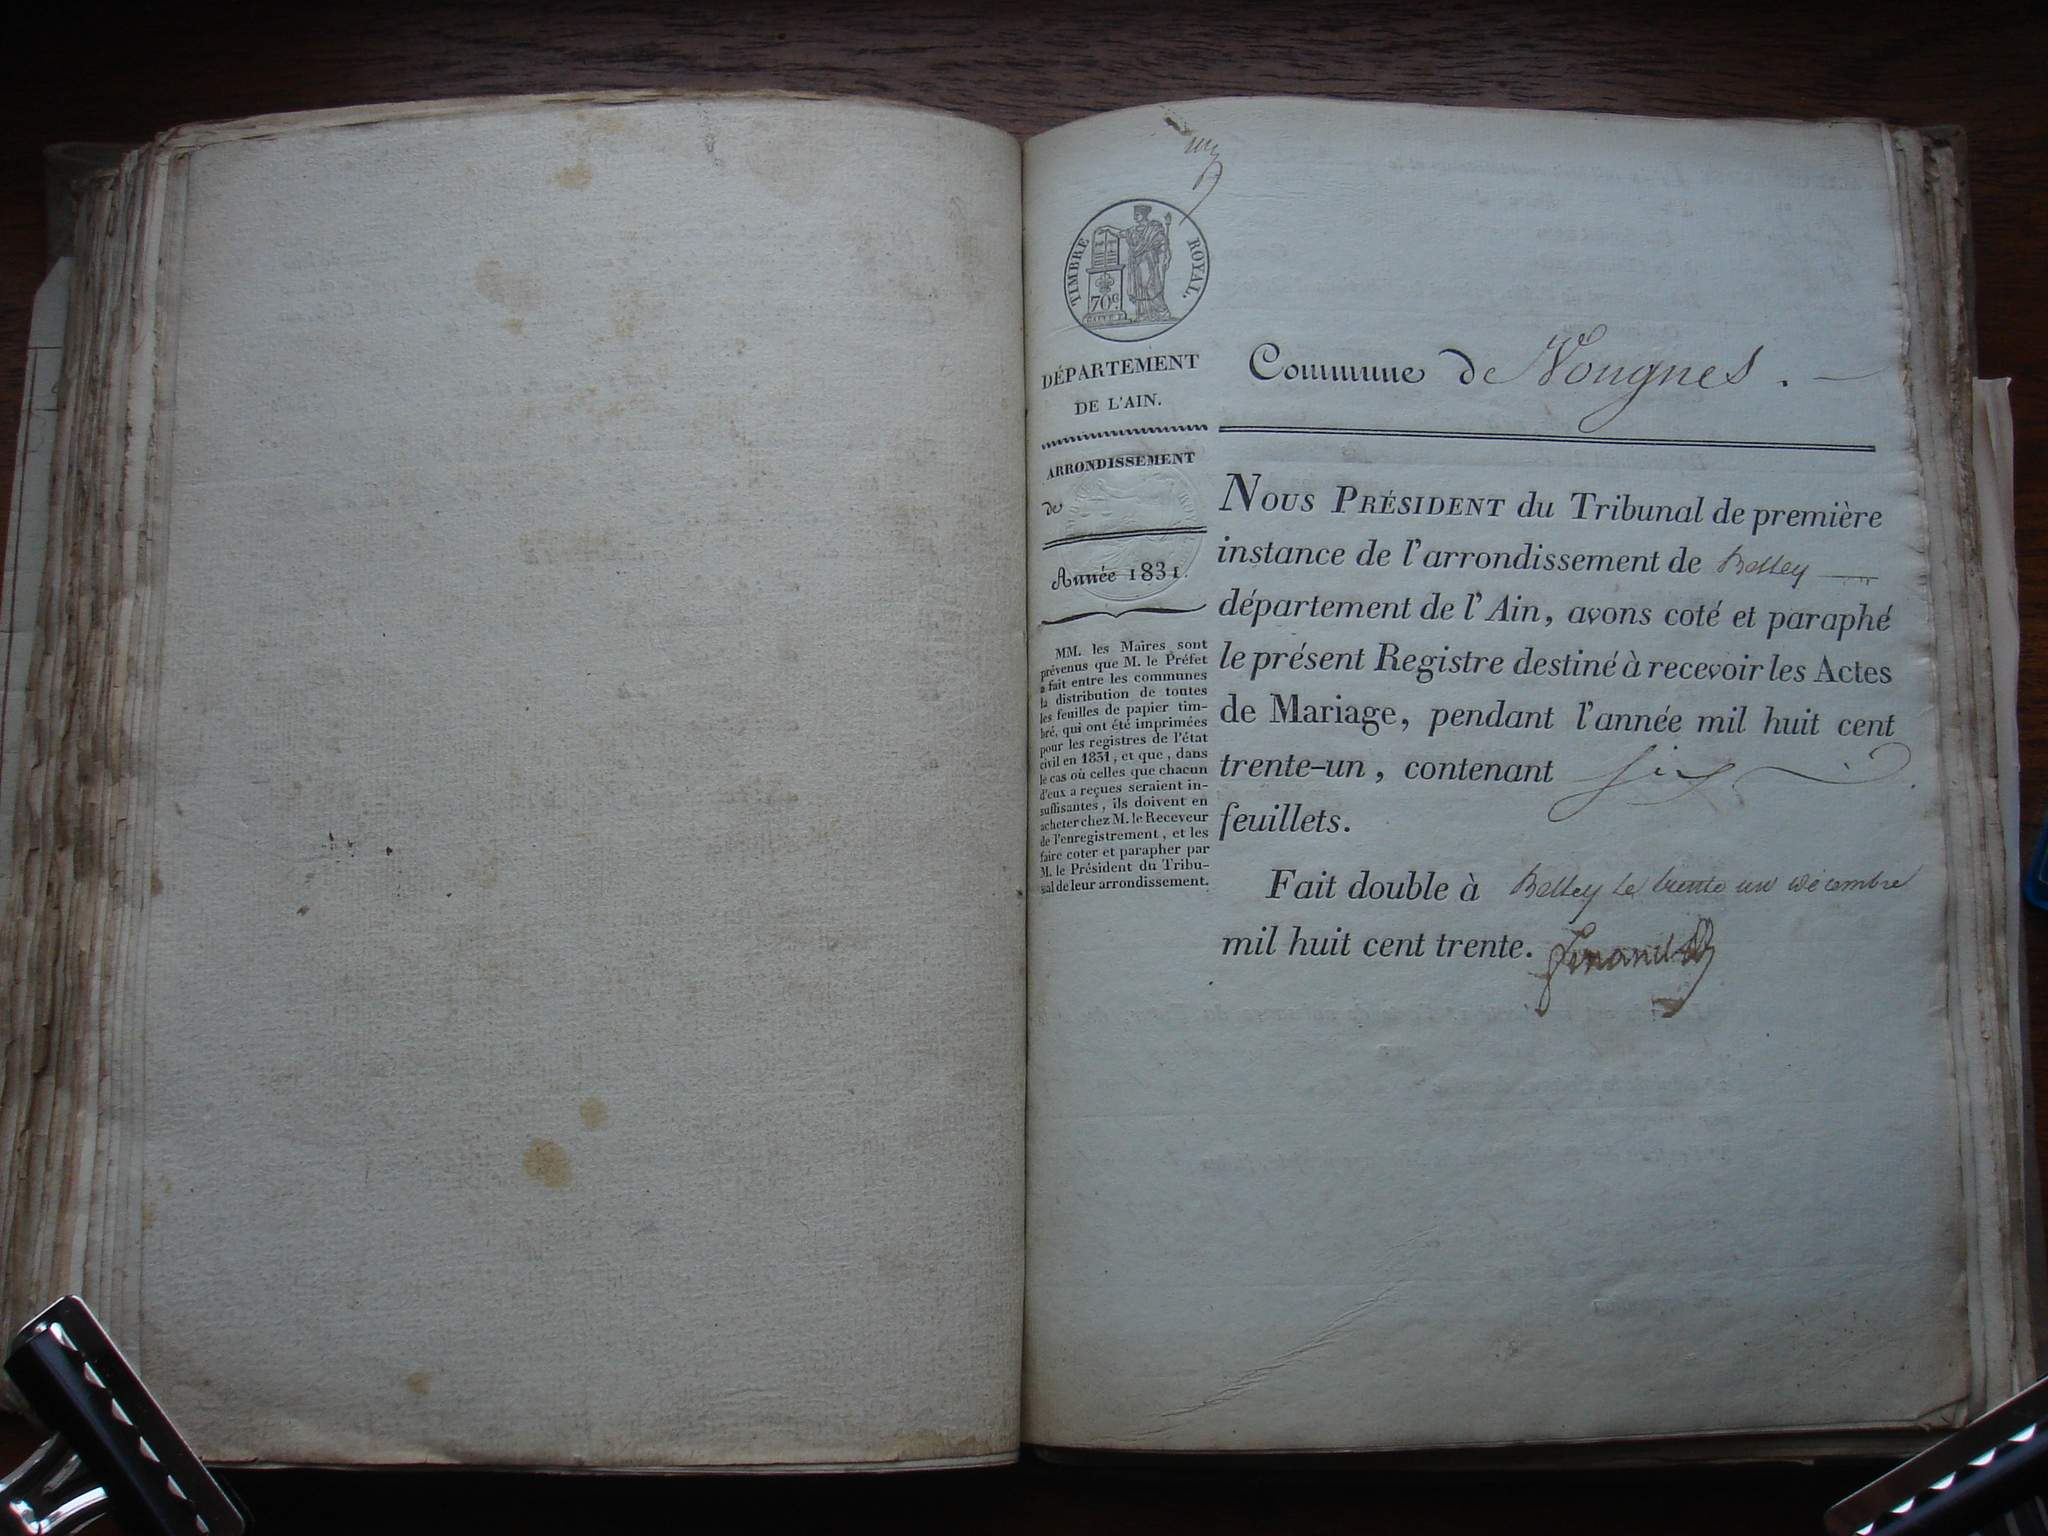 TIMBRE ROYAL.
70 C
DÉPARTEMENT
DE L'AIN.
ARRONDISSEMENT
de
Année 1831.
MM. les Maires sont
prévenus que M. le Préfet
a fait entre les communes
la distribution de toutes
les feuilles de papier tim-
bré, qui ont été imprimées
pour les registres de l'état
civil en 1831, et que, dans
le cas où celles que chacun
d'eux a reçues seraient in-
suffisantes, ils doivent en
acheter chez M. le Receveur
de l'enregistrement, et les
faire coter et parapher par
M. le Président du Tribu-
nal de leur arrondissement.
Commune de Vongnes.
NOUS PRÉSIDENT du Tribunal de première
instance de l'arrondissement de Belley
département de l'Ain, avons coté et paraphé
le présent Registre destiné à recevoir les Actes
de Mariage, pendant l'année mil huit cent
trente-un, contenant six
feuillets.
Fait double à Belley le trente un décembre
mil huit cent trente.